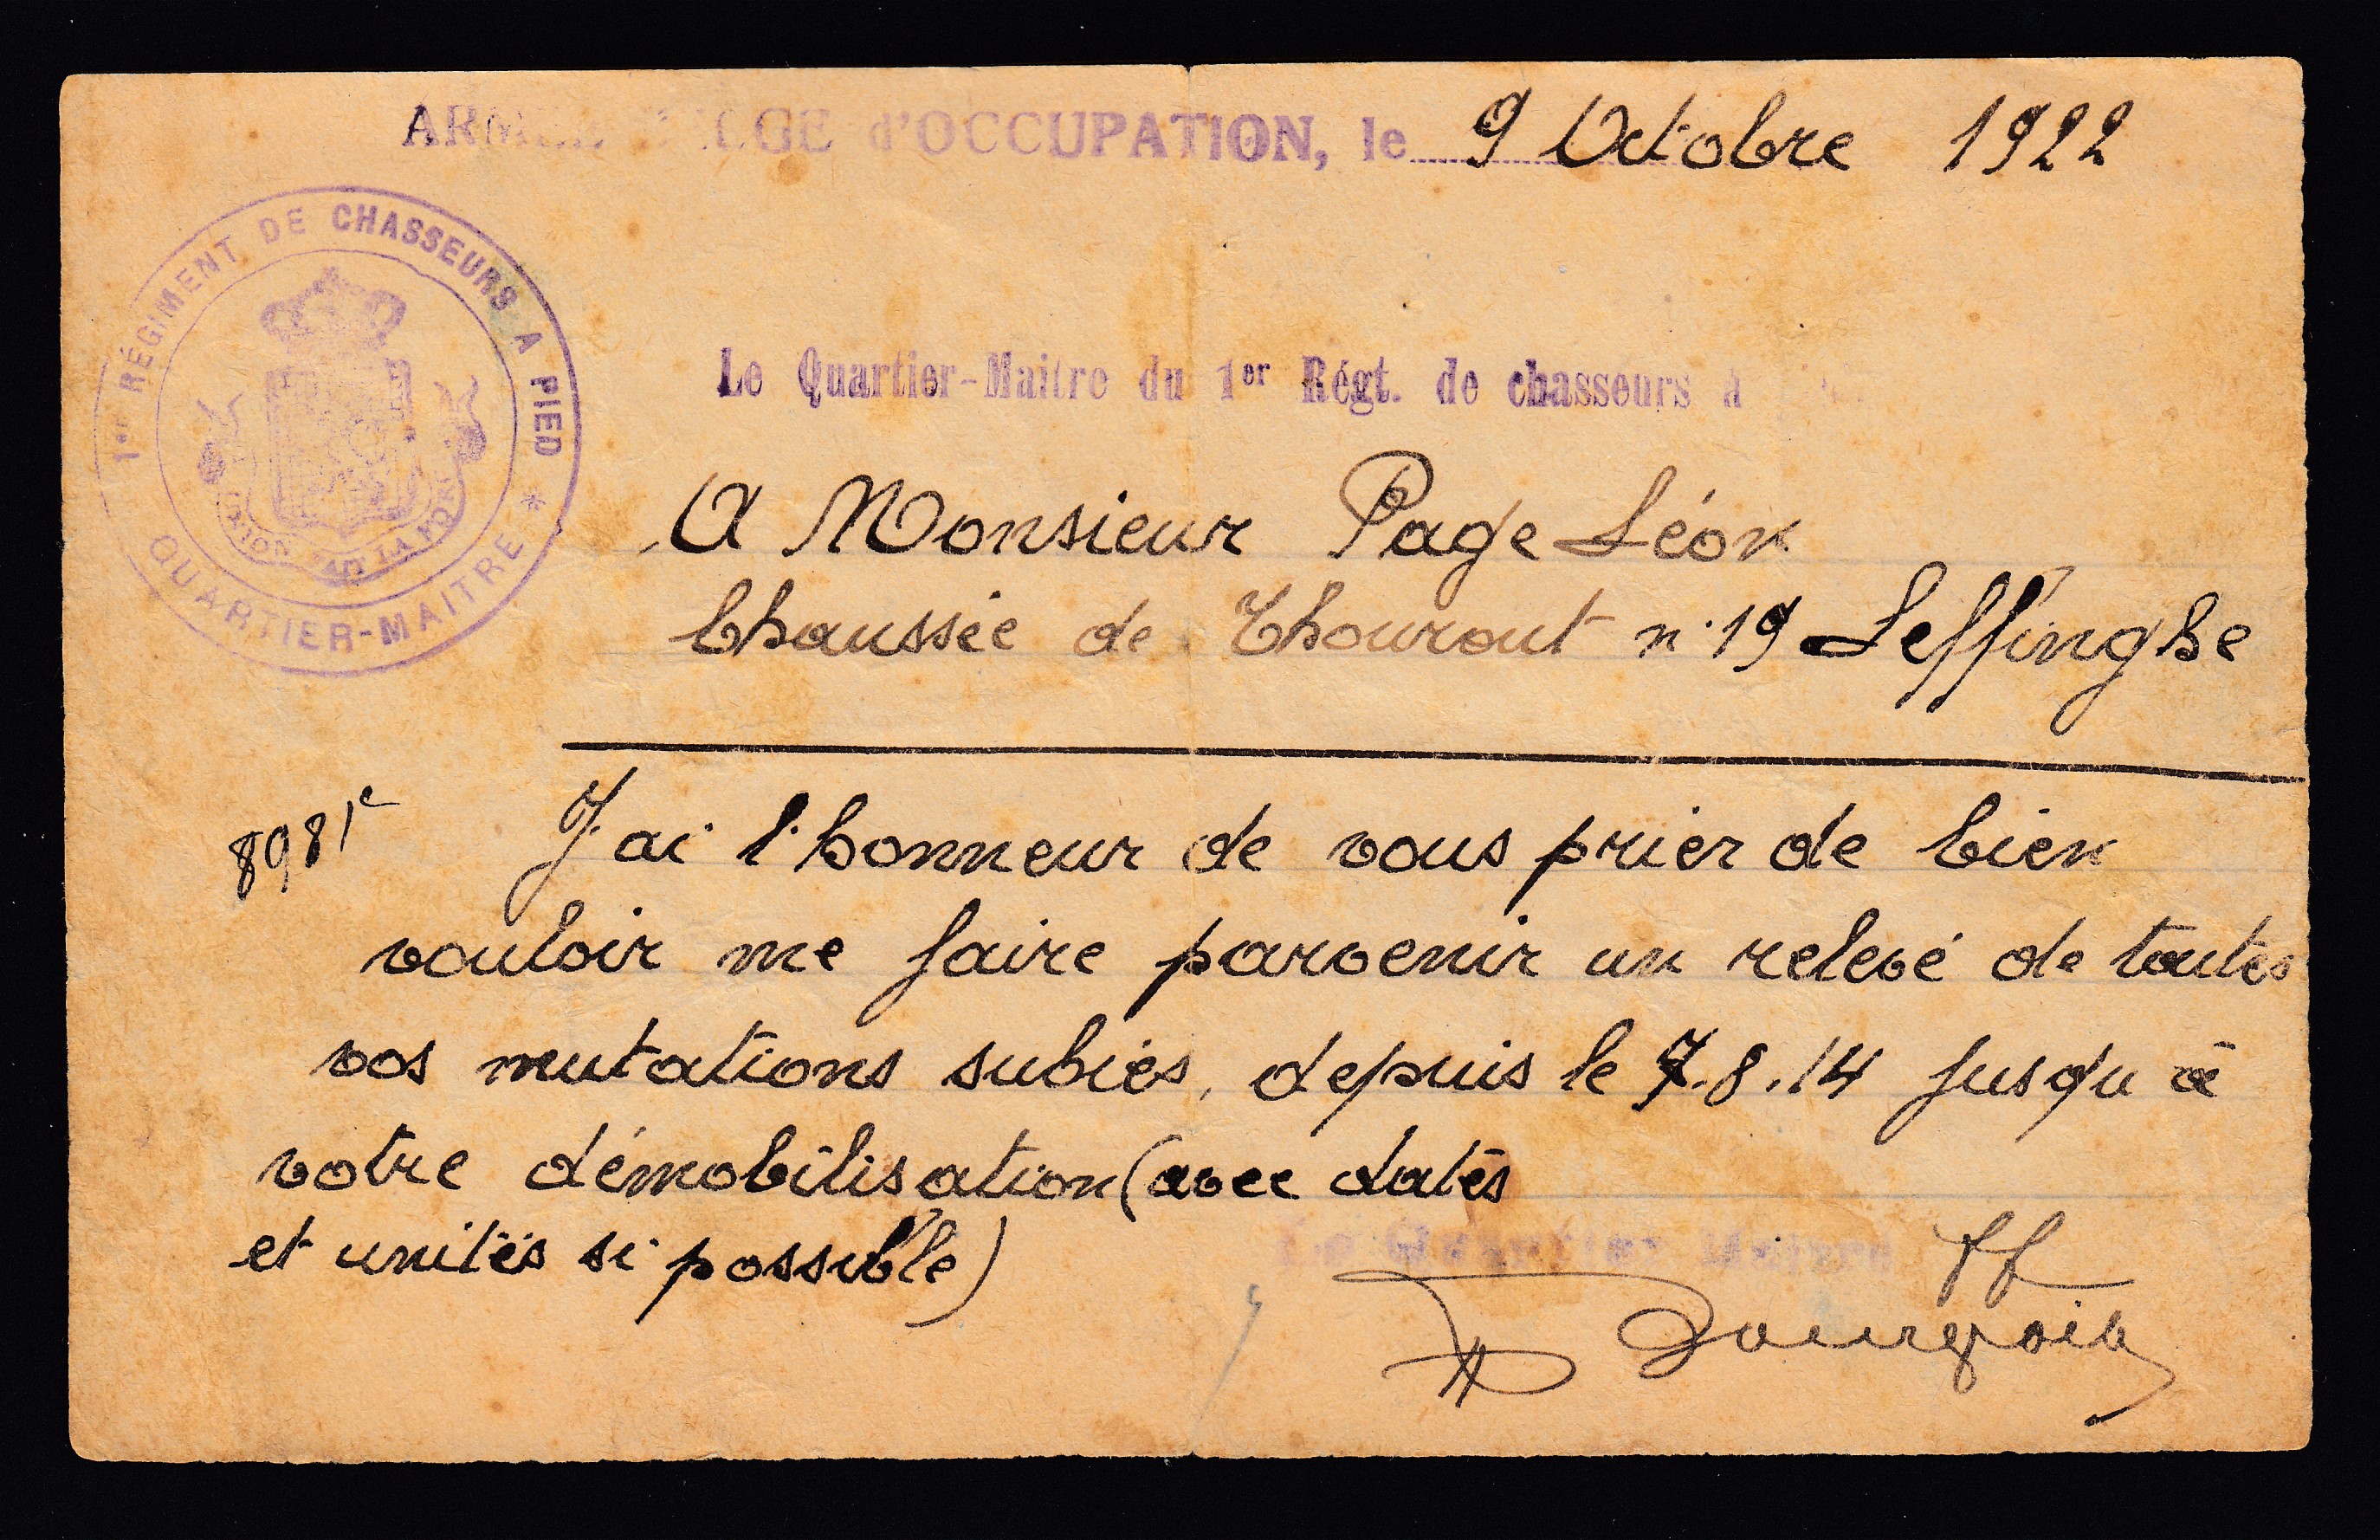 ARMÉE BELGE d'OCCUPATION, le 9 Octobre 1922
1er RÉGIMENT DE CHASSEURS A PIED * QUARTIER-MAITRE
UNION FAIT LA FORCE
Le Quartier-Maitre du 1er Régt. de chasseurs à
A Monsieur Page Léon
Chaussée de Thourout n° 19 Leffinghe
8981c
J'ai l'honneur de vous prier de bien
vouloir me faire parvenir un relevé de toutes
vos mutations subies, depuis le 7.8.14 jusqu'à
votre démobilisation (avec dates
et unités si possible)
Le Quartier Maitre ff